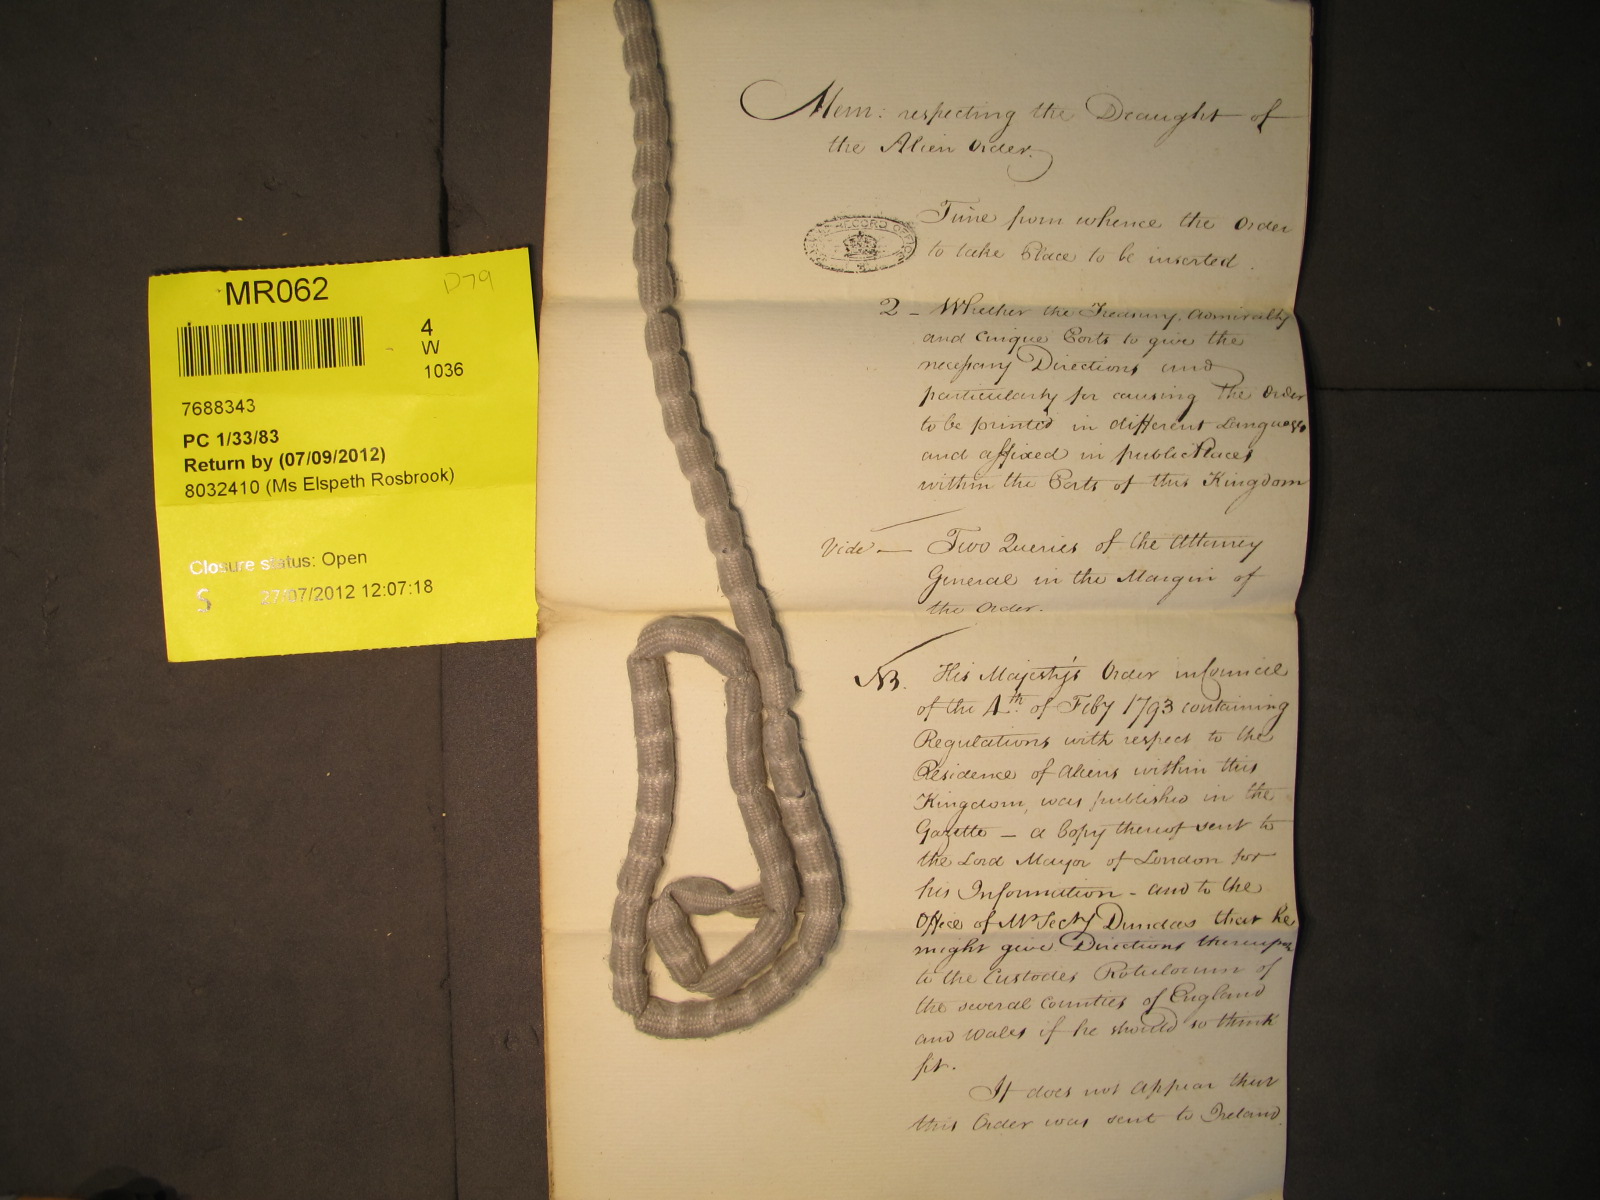 MR062
D79
4
W
1036
7688343
PC 1/33/83
Return by (07/09/2012)
8032410 (Ms Elspeth Rosbrook)
Closure status: Open
S 27/07/2012 12:07:18
Mem: respecting the Draught of
the Alien Order.
RECORD OFFICE
Time from whence the Order
to take Place to be inserted.
2 - Whether the Treasury, Admiralty
and Cinque Ports to give the
necessary Directions and
particularly for causing the Order
to be printed in different Languages
and affixed in public Places
within the Ports of this Kingdom
Vide — Two Queries of the Attorney
General in the Margin of
the Order.
NB. His Majesty's Order in Council
of the 4th. of Feby 1793 containing
Regulations with respect to the
Residence of Aliens within this
Kingdom, was published in the
Gazette — a Copy thereof sent to
the Lord Mayor of London for
his Information - and to the
Office of Mr Secry Dundas that he
might give Directions thereupon
to the Custodes Rotulorum of
the several Counties of England
and Wales if he should so think
fit.
It does not appear that
this Order was sent to Ireland.